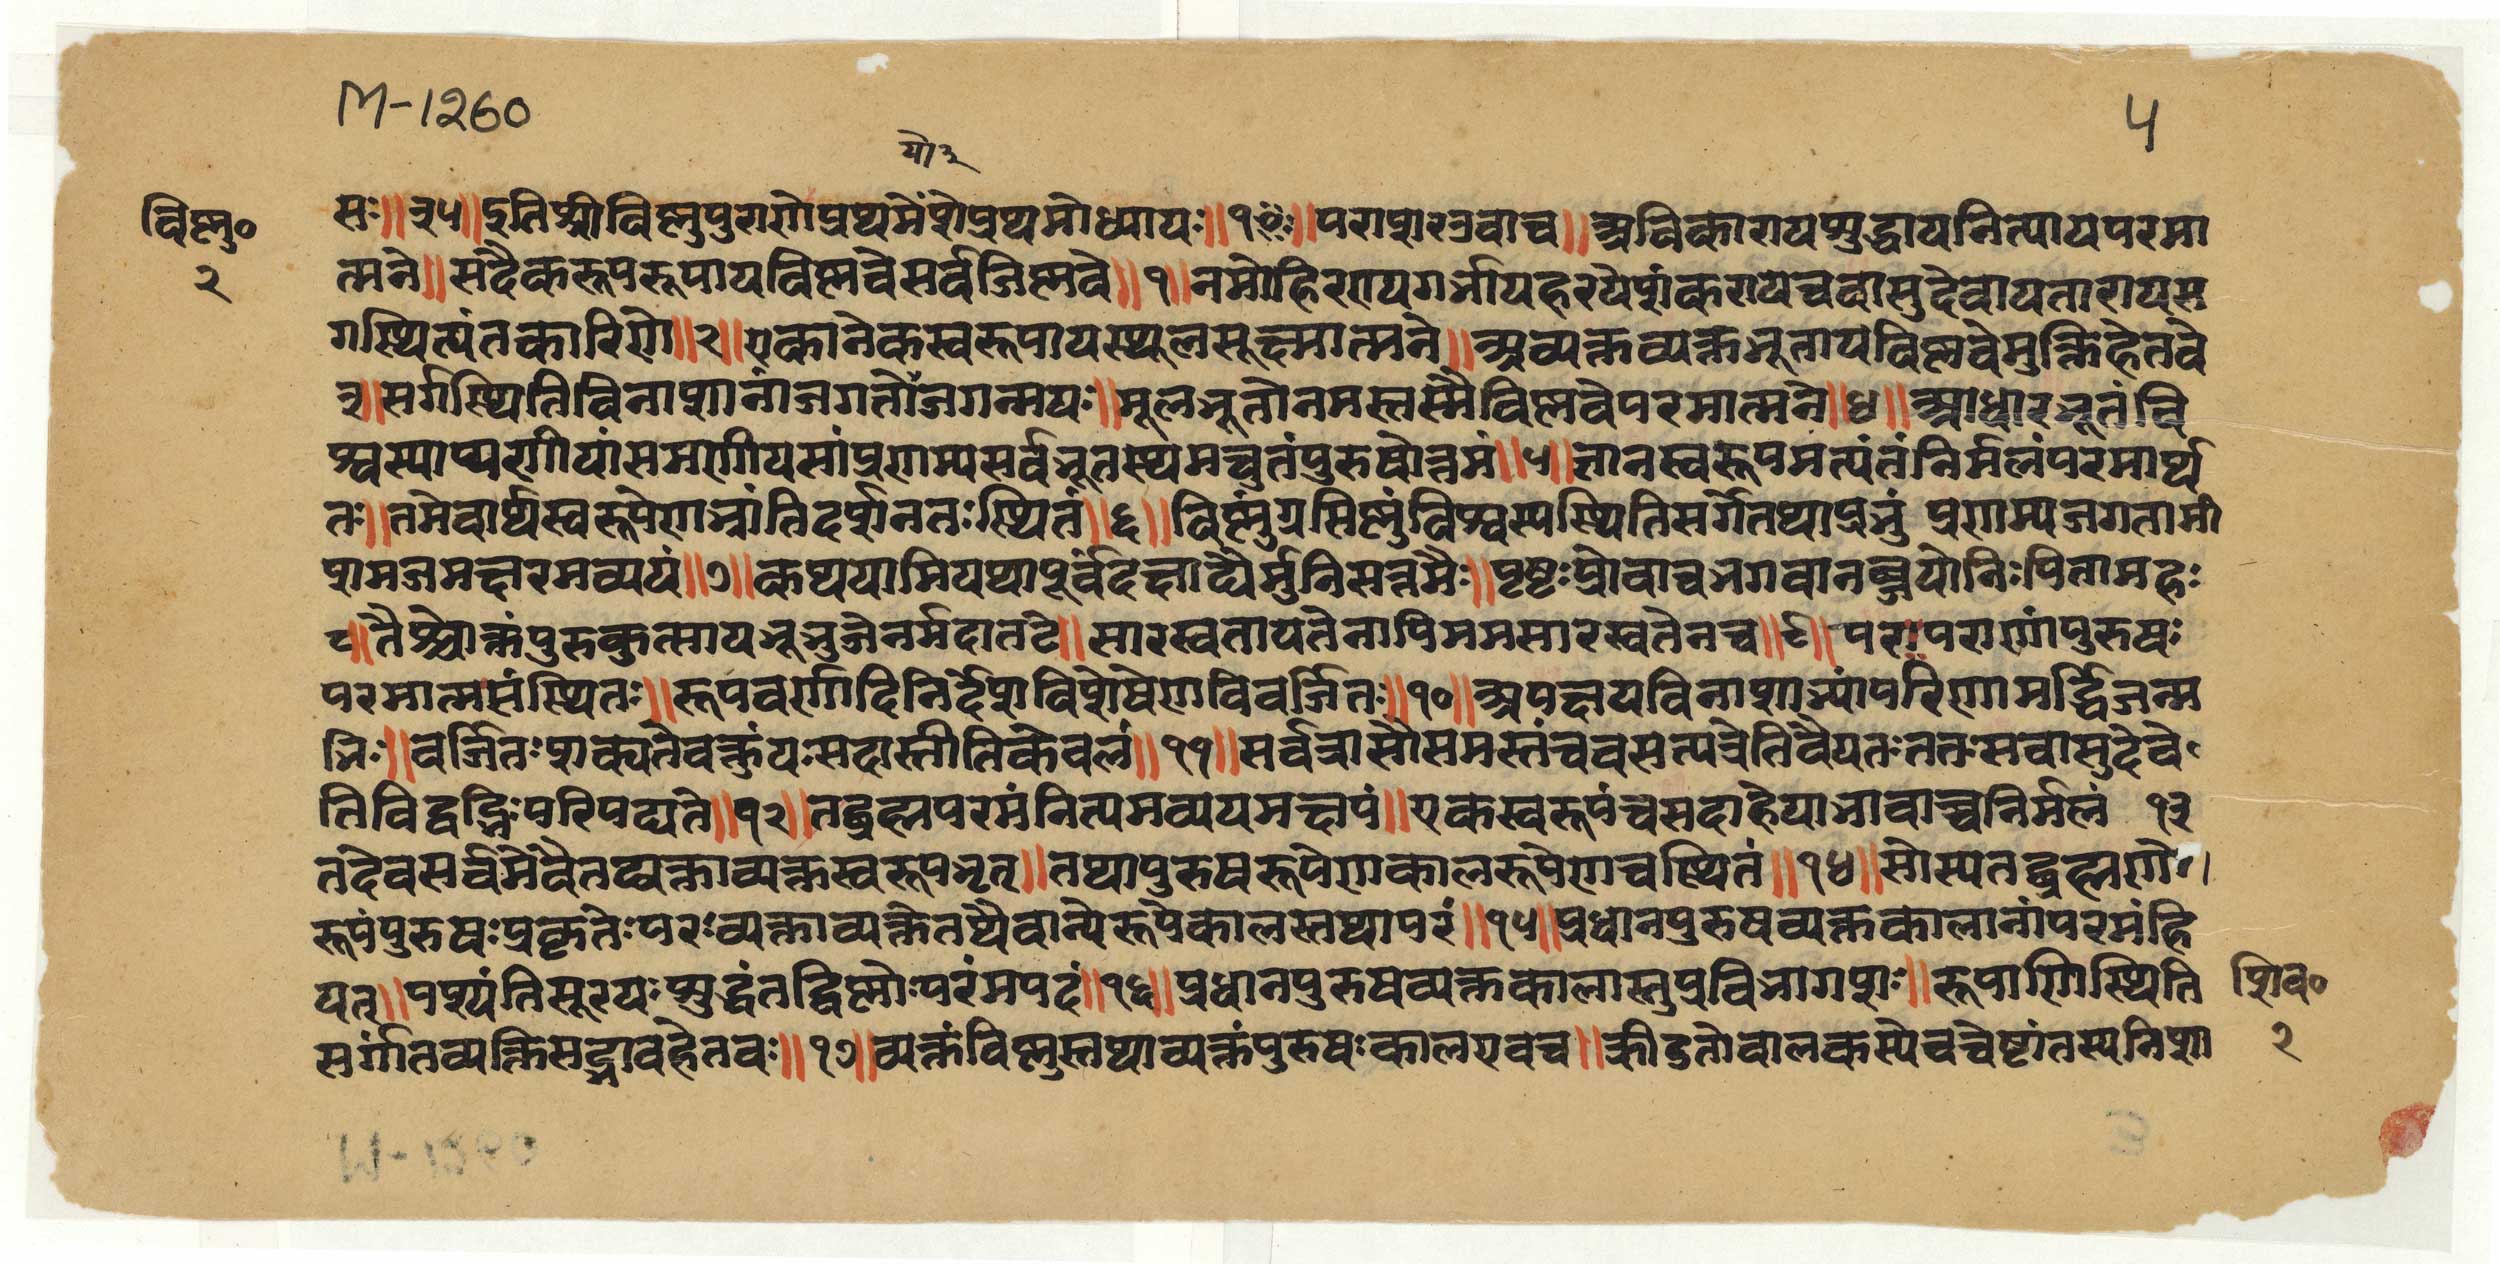 M-1260
५
यो३
विष्णु०
२
सः॥३५॥इतिश्रीविष्णुपुराणेप्रथमेंशेप्रथमोध्यायः॥१॥परापारउवाच॥अविकारायशुद्धायनित्यायपरमा
त्मने॥सदैकरूपरूपायविष्णवेसर्वजिष्णवे॥१॥नमोहिरण्यगर्भायहरयेशंकरायचवासुदेवायतारायस
र्गस्थित्यंतकारिणे॥२॥एकानेकस्वरूपायस्थूलसूक्ष्मात्मने॥अव्यक्तव्यक्तभूतायविष्णवेमुक्तिहेतवे
३॥सर्गस्थितिविनाशानांजगतोजगन्मयः॥मूलभूतोनमस्तस्मैविष्णवेपरमात्मने॥४॥आधारभूतंवि
श्वस्याप्यणीयांसमणीयसांप्रणम्यसर्वभूतस्थमच्युतंपुरुषोत्तमं॥५॥ज्ञानस्वरूपमत्यंतंनिर्मलंपरमार्थ
तः॥तमेवार्थस्वरूपेणभ्रांतिदर्शनतःस्थितं॥६॥विष्णुंग्रसिष्णुंविश्वस्यस्थितिसर्गेतथाप्रभुं प्रणम्यजगतामी
शमजमक्षरमव्ययं॥७॥कथयामियथापूर्वंदक्षाद्यैर्मुनिसत्तमैः॥पृष्टःप्रोवाचभगवानब्जयोनिःपितामहः
८॥तैश्चोक्तंपुरुकुत्सायभूभुजेनर्मदातटे॥सारस्वतायतेनापिममसारस्वतेनच॥९॥परःपराणांपुरुषः
परमात्मसंस्थितः॥रूपवर्णादिनिर्देशविशेषेणविवर्जितः॥१०॥अपक्षयविनाशाभ्यांपरिणामर्द्धिजन्म
भिः॥वर्जितःशक्यतेवक्तुंयःसदास्तीतिकेवलं॥११॥सर्वत्रासौसमस्तंचवसत्यत्रेतिवैयतःततःसवासुदेवे
तिविद्वद्भिःपरिपद्यते॥१२॥तद्ब्रह्मपरमंनित्यमव्ययमक्षयं॥एकस्वरूपंचसदाहेयाभावाच्चनिर्मलं १३
तदेवसर्वमेवैतद्व्यक्ताव्यक्तस्वरूपभृत्॥तथापुरुषरूपेणकालरूपेणचस्थितं॥१४॥सोस्यतद्ब्रह्मणो
रूपंपुरुषःप्रकृतेःपरःव्यक्ताव्यक्तेतथैवान्येरूपेकालस्तथापरं॥१५॥प्रधानपुरुषव्यक्तकालानांपरमंहि
यत्॥पश्यंतिसूरयःशुद्धंतद्विष्णोःपरंमपदं॥१६॥प्रधानपुरुषव्यक्तकालास्तुप्रविभागशः॥रूपाणिस्थिति
सर्गांतव्यक्तिसद्भावहेतवः॥१७॥व्यक्तंविष्णुस्तथाव्यक्तंपुरुषःकालएवच॥क्रीडतोबालकस्येवचेष्टांतस्यनिशा
शिव०
२